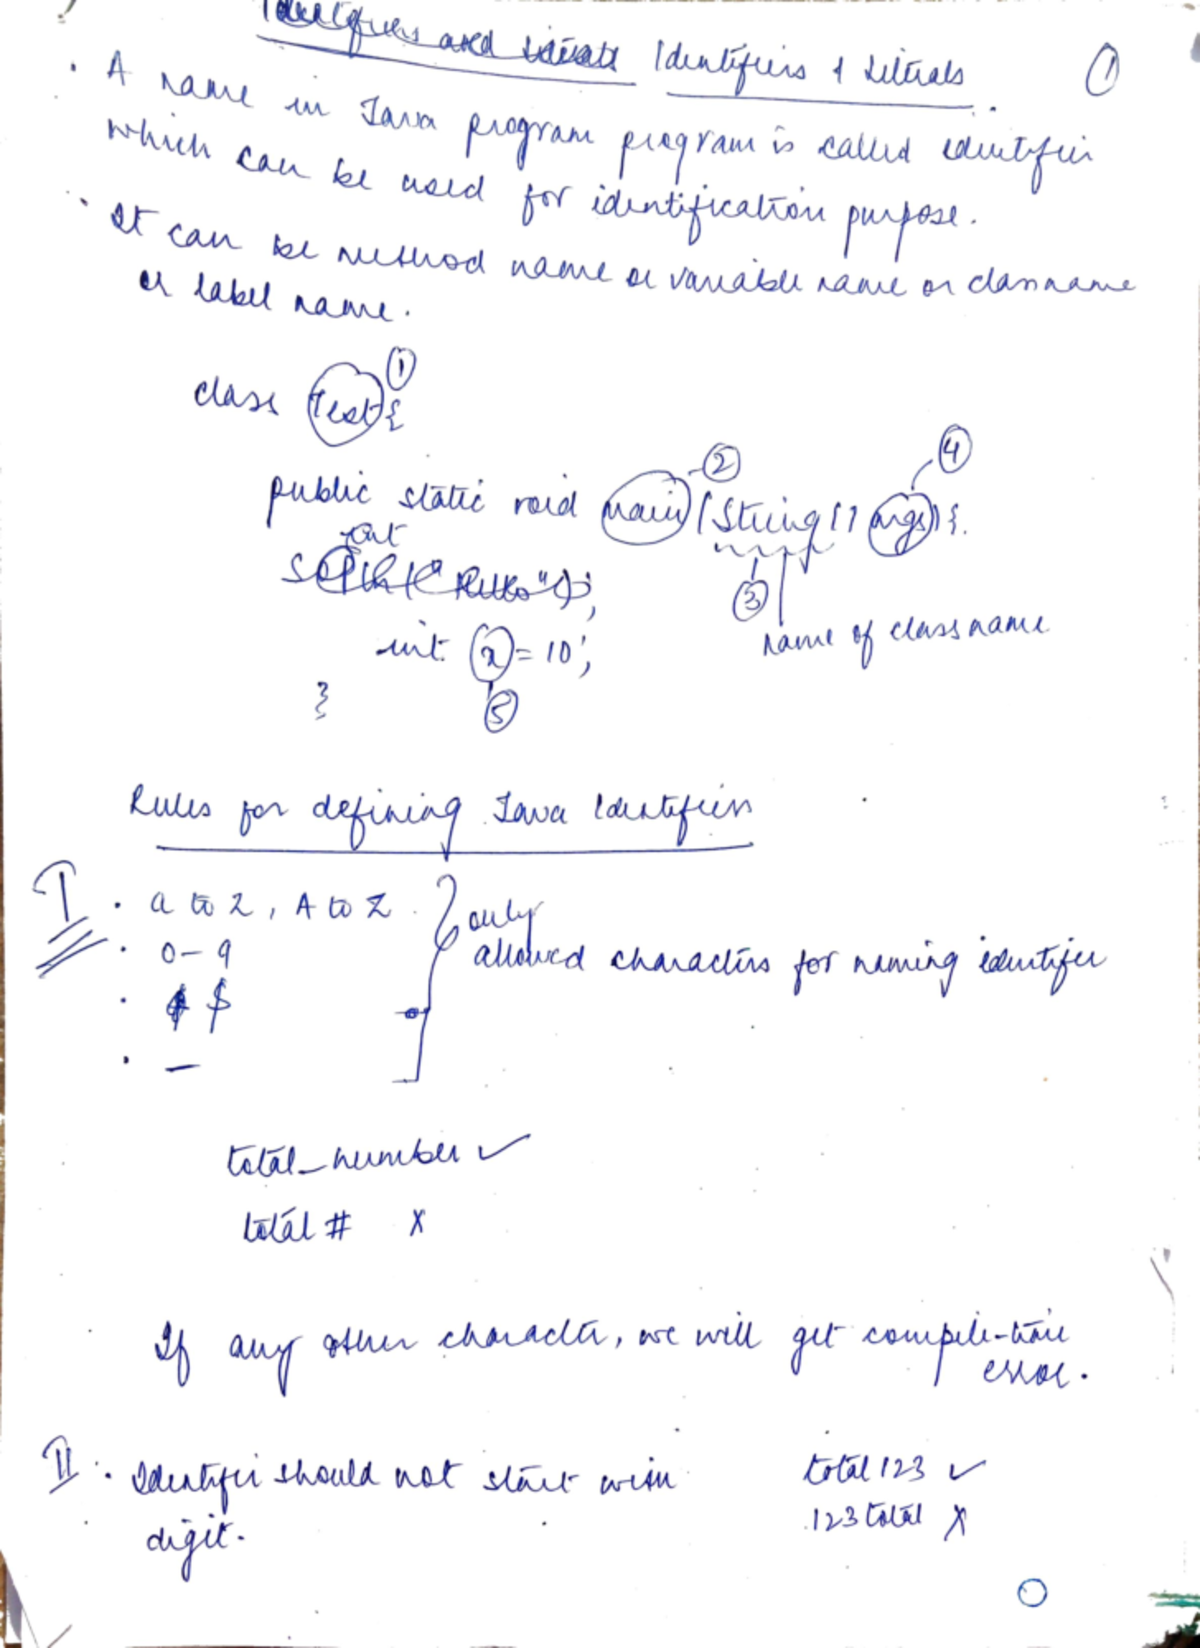 Identifiers and literals Identifiers & Literals ①
. A name in Java program program is called identifier
which can be used for identification purpose.
. It can be method name or variable name or classname
or label name.
①
class Test {
② ④
public static void main (String [] args) {
out
③
name of classname
int x = 10;
⑤
}
Rules for defining Java Identifiers
I . a to z, A to Z. only
. 0-9 allowed characters for naming identifier
. $
. _
total_number ✓
total # x
If any other character, we will get compile-time
error.
II . Identifier should not start with total123 ✓
digit. 123total x